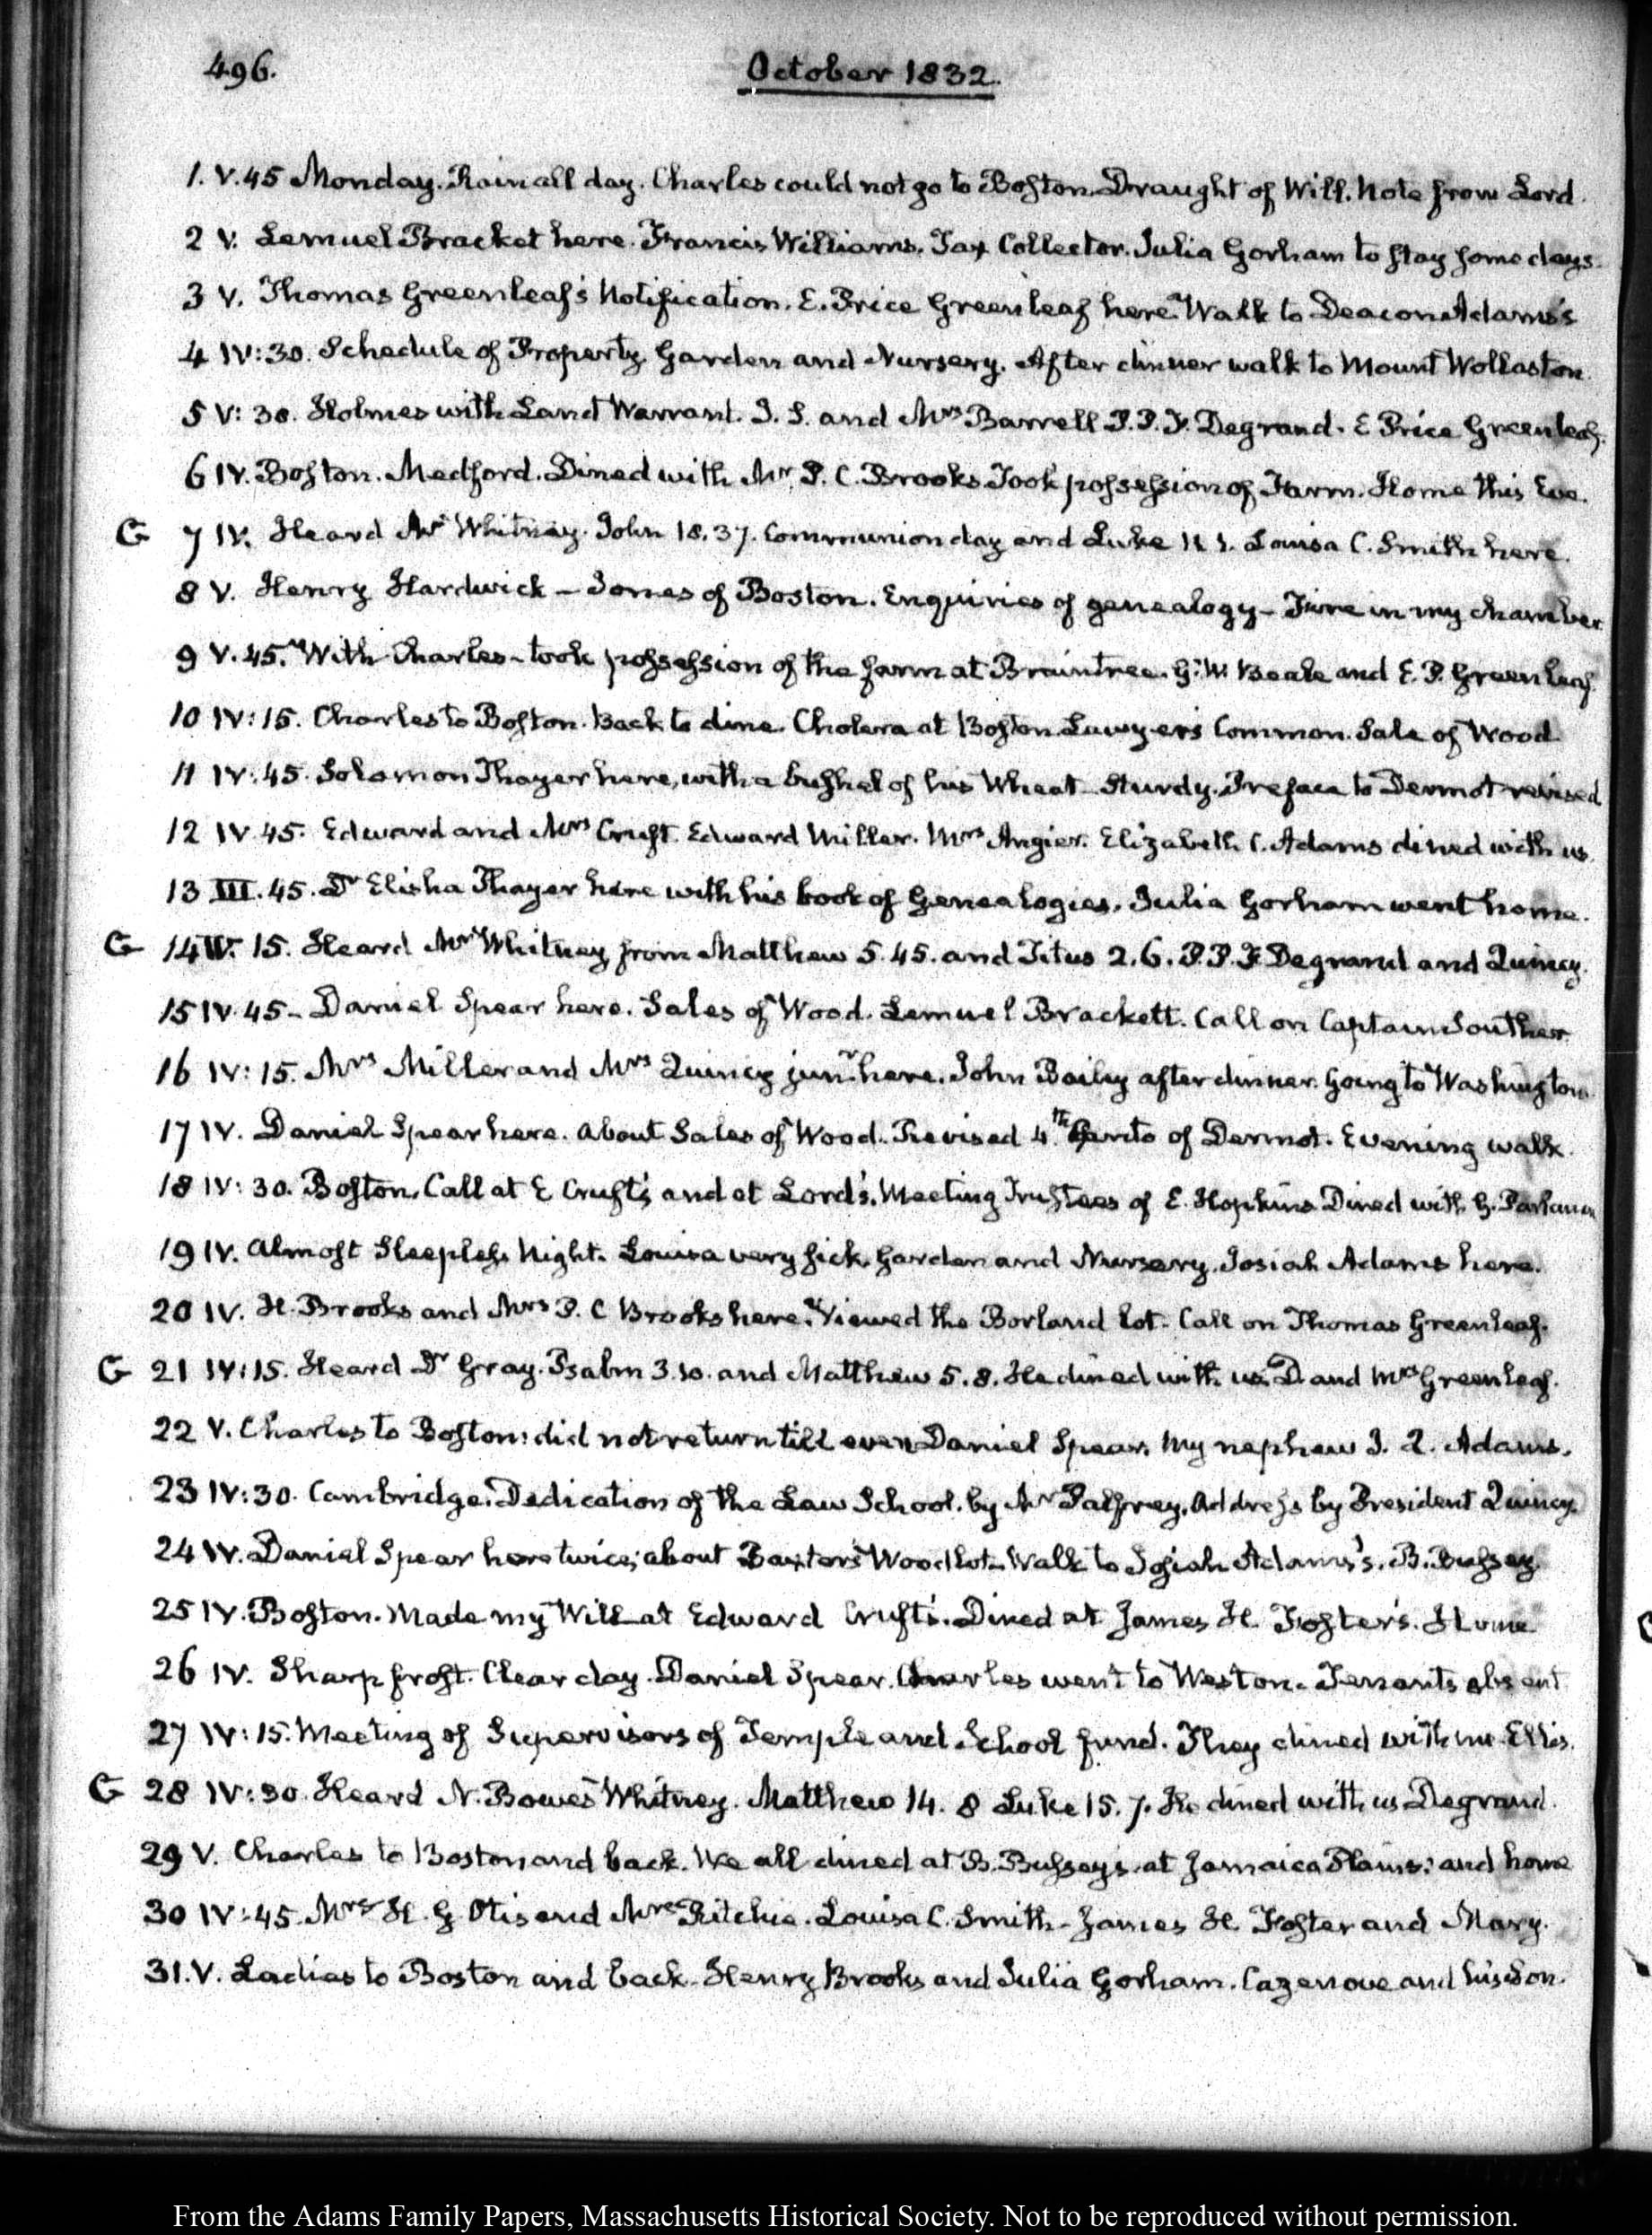 496.
October 1832.
1. V.45 Monday. Rain all day. Charles could not go to Boſton. Draught of Will. Note from Lord.
2 V. Lemuel Bracket here. Francis Williams. Tax Collector. Julia Gorham to ſtay ſome days.
3 V. Thomas Greenleaf's Notification. E. Price Greenleaf here. Walk to Deacon Adams's
4 IV:30. Schedule of Property. Garden and Nursery. After dinner walk to Mount Wollaston.
5 V:30. Holmes with Land Warrant. J. S. and Mrs Barrell P.P.F. Degrand. E Price Greenleaf.
6 IV. Boſton. Medford. Dined with Mr P. C. Brooks Took poſseſsion of Farm. Home this Eve.
G 7 IV. Heard Mr Whitney. John 18.37. Communion day and Luke Louisa C. Smith here.
8 V. Henry Hardwick – Jones of Boston. Enquiries of genealogy – Fire in my chamber
9 V.45. With Charles – took poſseſsion of the farm at Braintree. G. W. Beale and E. P. Greenleaf.
10 IV:15. Charles to Boſton. Back to dine. Cholera at Boſton. Lawyer's Common. Sale of Wood
11 IV:45. Solomon Thayer here, with a buſhel of his Wheat – Sturdy. Preface to Dermot revised
12 IV 45. Edward and Mrs Cruft. Edward Miller. Mrs Angier. Elizabeth C. Adams dined with us.
13 III.45. Dr Elisha Thayer here with his book of Genealogies. Julia Gorham went home.
G 14 IV. 15. Heard Mr Whitney from Matthew 5.45. and Titus 2.6. P.P.F. Degrand and Quincy.
15 IV 45 – Daniel Spear here. Sales of Wood. Lemuel Brackett. Call on Captain Souther.
16 IV:15. Mrs Miller and Mrs Quincy junr here. John Baily after dinner. Going to Washington.
17 IV. Daniel Spear here. About Sales of Wood. Revised 4.th Canto of Dermot. Evening walk.
18 IV:30. Boſton. Call at E Cruft's and at Lord's. Meeting Truſtees of E. Hopkins Dined with G. Parkman
19 IV. Almoſt Sleepleſs Night. Louisa very ſick. Garden and Nursery. Josiah Adams here.
20 IV. H. Brooks and Mrs P. C Brooks here. Viewed the Borland lot. Call on Thomas Greenleaf.
G 21 IV:15. Heard Dr Gray. Psalm 3.10. and Matthew 5.8. He dined with us. D. and Mrs Greenleaf.
22 V. Charles to Boſton: did not return till even Daniel Spear. My nephew J. Q. Adams.
23 IV:30. Cambridge. Dedication of the Law School. by Mr Palfrey. Addreſs by President Quincy.
24 IV. Daniel Spear here twice; about Baxter's Wood lot – Walk to Josiah Adams's. B. Buſsey.
25 IV. Boſton. Made my Will at Edward Cruft's. Dined at James H. Foſter's. Home
26 IV. Sharp froſt. Clear day. Daniel Spear. Charles went to Weston. Tenants absent
27 IV:15. Meeting of Supervisors of Temple and School fund. They dined with me. Ellis.
G 28 IV:30. Heard N. Bowes Whitney. Matthew 14. 8 Luke 15. 7. He dined with us Degrand.
29 V. Charles to Boston and back. We all dined at B. Buſsey's at Jamaica Plains: and home
30 IV:45. Mrs H. G Otis and Mrs Ritchie. Louisa C. Smith – James H. Foſter and Mary.
31. V. Ladies to Boston and back – Henry Brooks and Julia Gorham. Cazenove and his Son.
From the Adams Family Papers, Massachusetts Historical Society. Not to be reproduced without permission.